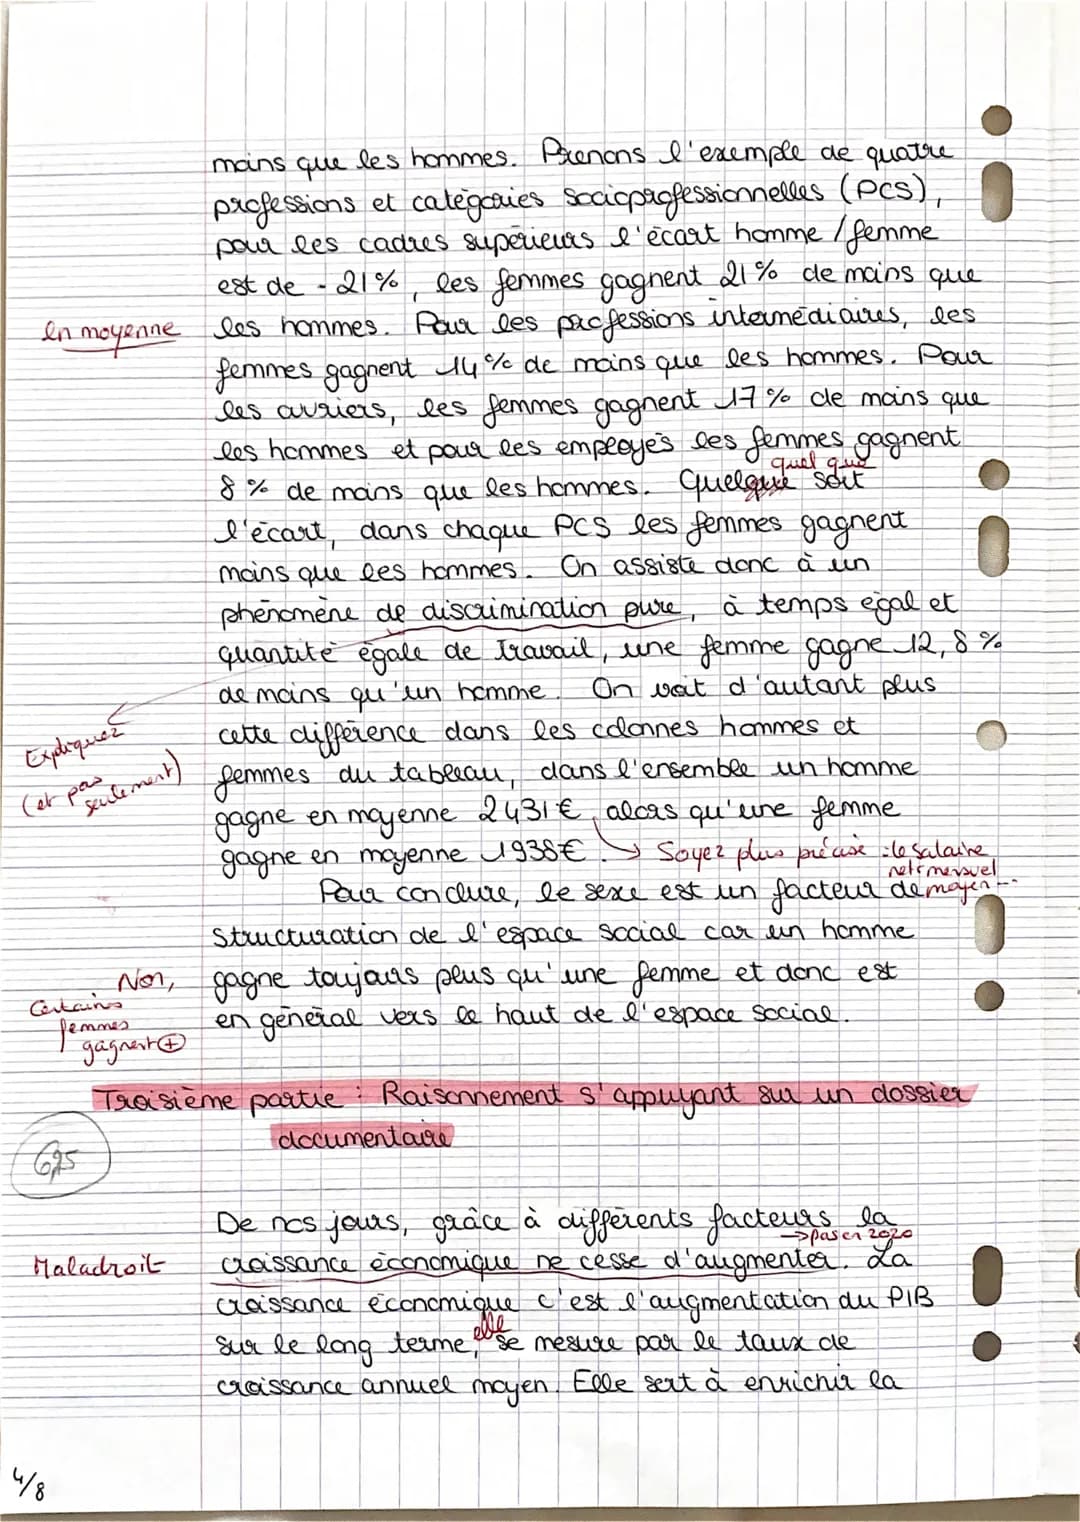 moins que les hommes. Prenons l'exemple de quatre
professions et catégories socioprofessionnelles (PCS),
pour les cadres supérieurs l'écart homme/femme
est de -21%, les femmes gagnent 21% de moins que
en moyenne
les hommes. Pour les professions intermédiaires, les
femmes gagnent 14% de moins que les hommes. Pour
les ouvriers, les femmes gagnent 17% de moins que
les hommes et pour les employés les femmes gagnent
quel que
8% de moins que les hommes. Quelque soit
l'écart, dans chaque PCS les femmes gagnent
moins que les hommes. On assiste donc à un
phénomène de discrimination pure, à temps égal et
quantité égale de travail, une femme gagne 12,8%
de moins qu'un homme. On voit d'autant plus
Expliquez
(et pas
seulement)
cette différence dans les colonnes hommes et
femmes du tableau, dans l'ensemble un homme
gagne en moyenne 2431€, alors qu'une femme
gagne en moyenne 1938€. → Soyez plus précise : le salaire
net mensuel
moyen...
Pour conclure, le sexe est un facteur de
structuration de l'espace social car un homme
Non,
certaines
femmes
gagnent +
gagne toujours plus qu'une femme et donc est
en général vers le haut de l'espace social.
Troisième partie : Raisonnement s'appuyant sur un dossier
documentaire
6,75
De nos jours, grâce à différents facteurs la
→ pas en 2020
Maladroit
croissance économique ne cesse d'augmenter. La
croissance économique c'est l'augmentation du PIB
elle
sur le long terme, se mesure par le taux de
croissance annuel moyen. Elle sert à enrichir la
4/8